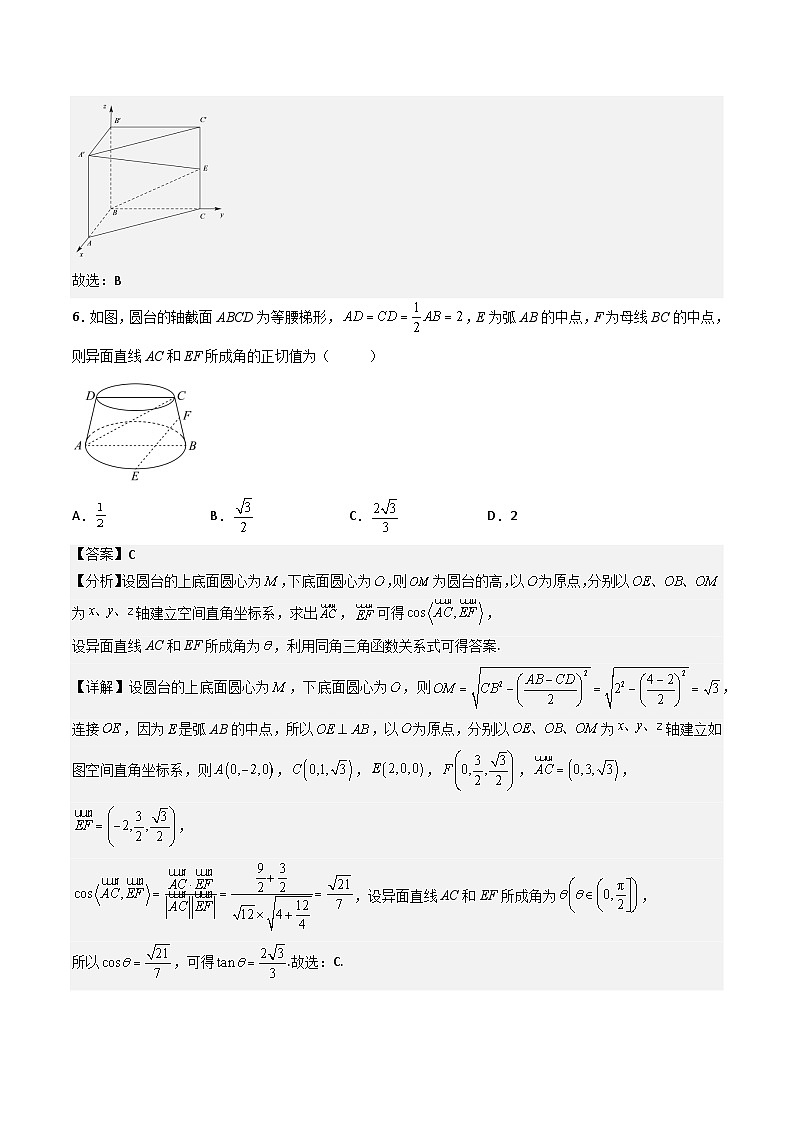 z
B' C'
A'
E
B C y
A
x
故选：B
6．如图，圆台的轴截面ABCD为等腰梯形，AD=CD=\frac{1}{2}AB=2，E为弧AB的中点，F为母线BC的中点，
则异面直线AC和EF所成角的正切值为（ ）
D C
F
A B
E
A．\frac{1}{2} B．\frac{\sqrt{3}}{2} C．\frac{2\sqrt{3}}{3} D．2
【答案】C
【分析】设圆台的上底面圆心为M，下底面圆心为O，则OM为圆台的高，以O为原点，分别以OE、OB、OM
为x、y、z轴建立空间直角坐标系，求出\overrightarrow{AC}，\overrightarrow{EF}可得cos⟨\overrightarrow{AC},\overrightarrow{EF}⟩，
设异面直线AC和EF所成角为θ，利用同角三角函数关系式可得答案.
【详解】设圆台的上底面圆心为M，下底面圆心为O，则OM=\sqrt{CB^2-\left(\frac{AB-CD}{2}\right)^2}=\sqrt{2^2-\left(\frac{4-2}{2}\right)^2}=\sqrt{3}，
连接OE，因为E是弧AB的中点，所以OE⊥AB，以O为原点，分别以OE、OB、OM为x、y、z轴建立如
图空间直角坐标系，则A(0,-2,0)，C(0,1,\sqrt{3})，E(2,0,0)，F\left(0,\frac{3}{2},\frac{\sqrt{3}}{2}\right)，\overrightarrow{AC}=(0,3,\sqrt{3})，
\overrightarrow{EF}=\left(-2,\frac{3}{2},\frac{\sqrt{3}}{2}\right)，
cos⟨\overrightarrow{AC},\overrightarrow{EF}⟩=\frac{\overrightarrow{AC}·\overrightarrow{EF}}{|\overrightarrow{AC}||\overrightarrow{EF}|}=\frac{\frac{9}{2}+\frac{3}{2}}{\sqrt{12}×\sqrt{4+\frac{12}{4}}}=\frac{\sqrt{21}}{7}，设异面直线AC和EF所成角为θ\left(θ∈\left(0,\frac{π}{2}\right]\right)，
所以cosθ=\frac{\sqrt{21}}{7}，可得tanθ=\frac{2\sqrt{3}}{3}.故选：C.